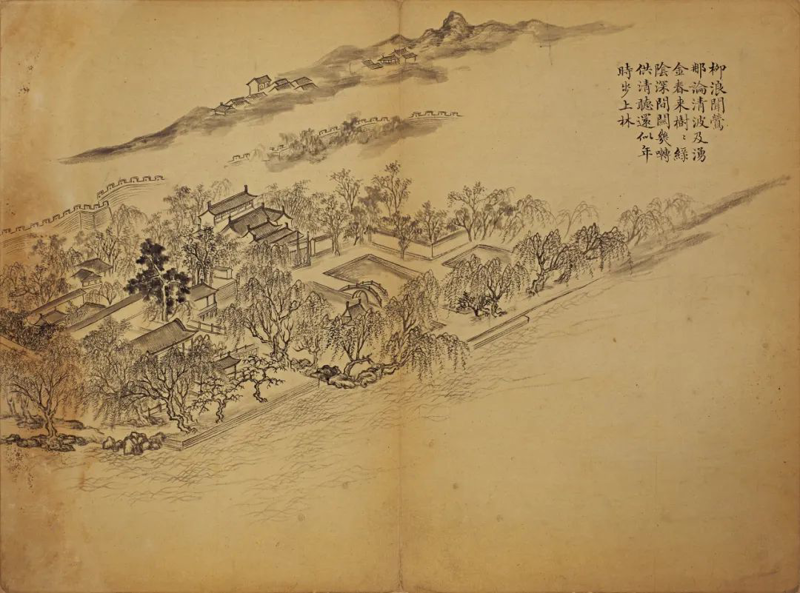 柳浪聞鶯
那論清波及湧
金春来樹〻緑
陰深間關幾囀
供清聽還似年
時步上林